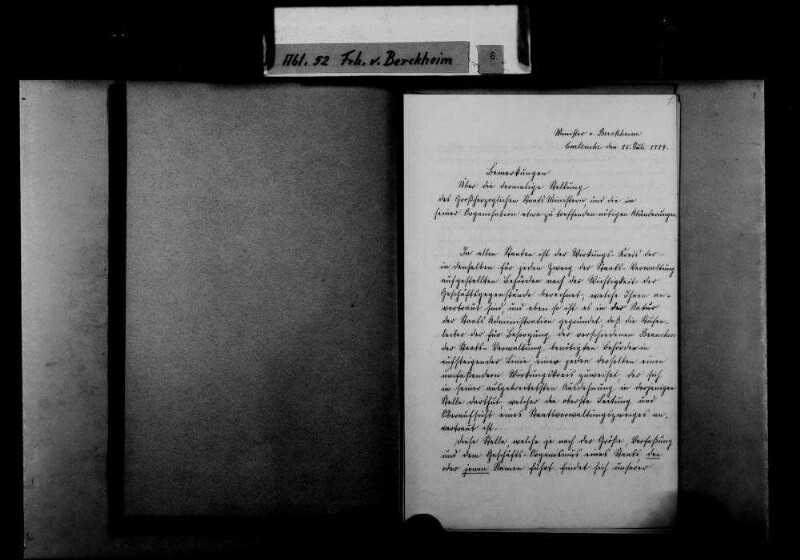 Abt. 52 Frh. v. Berckheim
6
1.
Minister v. Berckheim
Carlsruhe den 25. 1819.
Bemerkungen
Über die dermalige Stellung
des Großherzoglichen Staats Ministerii, und die in
seiner Organisation etwa zu treffenden nötigen Abänderungen
In allen Staaten ist der Wirkungs-Kreis der
in denselben für jeden Zweig der Staats-Verwaltung
aufgestellten Behörden nach der Wichtigkeit der
Geschäftsgegenstände berechnet, welche Ihnen an-
vertraut sind, und eben so ist es in der Natur
der Staats Administration gegründet, daß die Stufen-
leiter der für Besorgung der verschiedenen Branchen
der Staats-Verwaltung benötigten Behörden in
aufsteigender Linie, einer jeden derselben einen
umfaßendern Wirkungskreis zuweiset, der sich
in seiner ausgebreitetsten Ausdehnung in derjenigen
Stelle darthut, welcher die oberste Leitung und
Oberaufsicht eines Staatsverwaltungszweiges an-
vertraut ist.
Diese Stelle, welche je nach der Größe, Verfaßung
und dem Geschäfts-Organismus eines Staats den
oder jenen Namen führt findet sich unserer